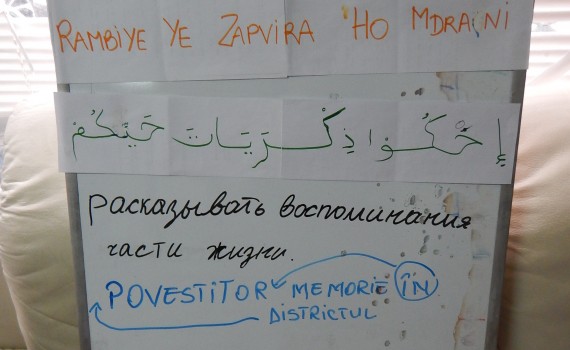 RAMBIYE YE ZAPVIRA 'HO MDRAINI
إحْكُوا ذِكْرَيَاتَ حَيَّكُمْ
Расказывать воспоминания
части жизни.
POVESTITOR MEMORIE ÎN
DISTRICTUL